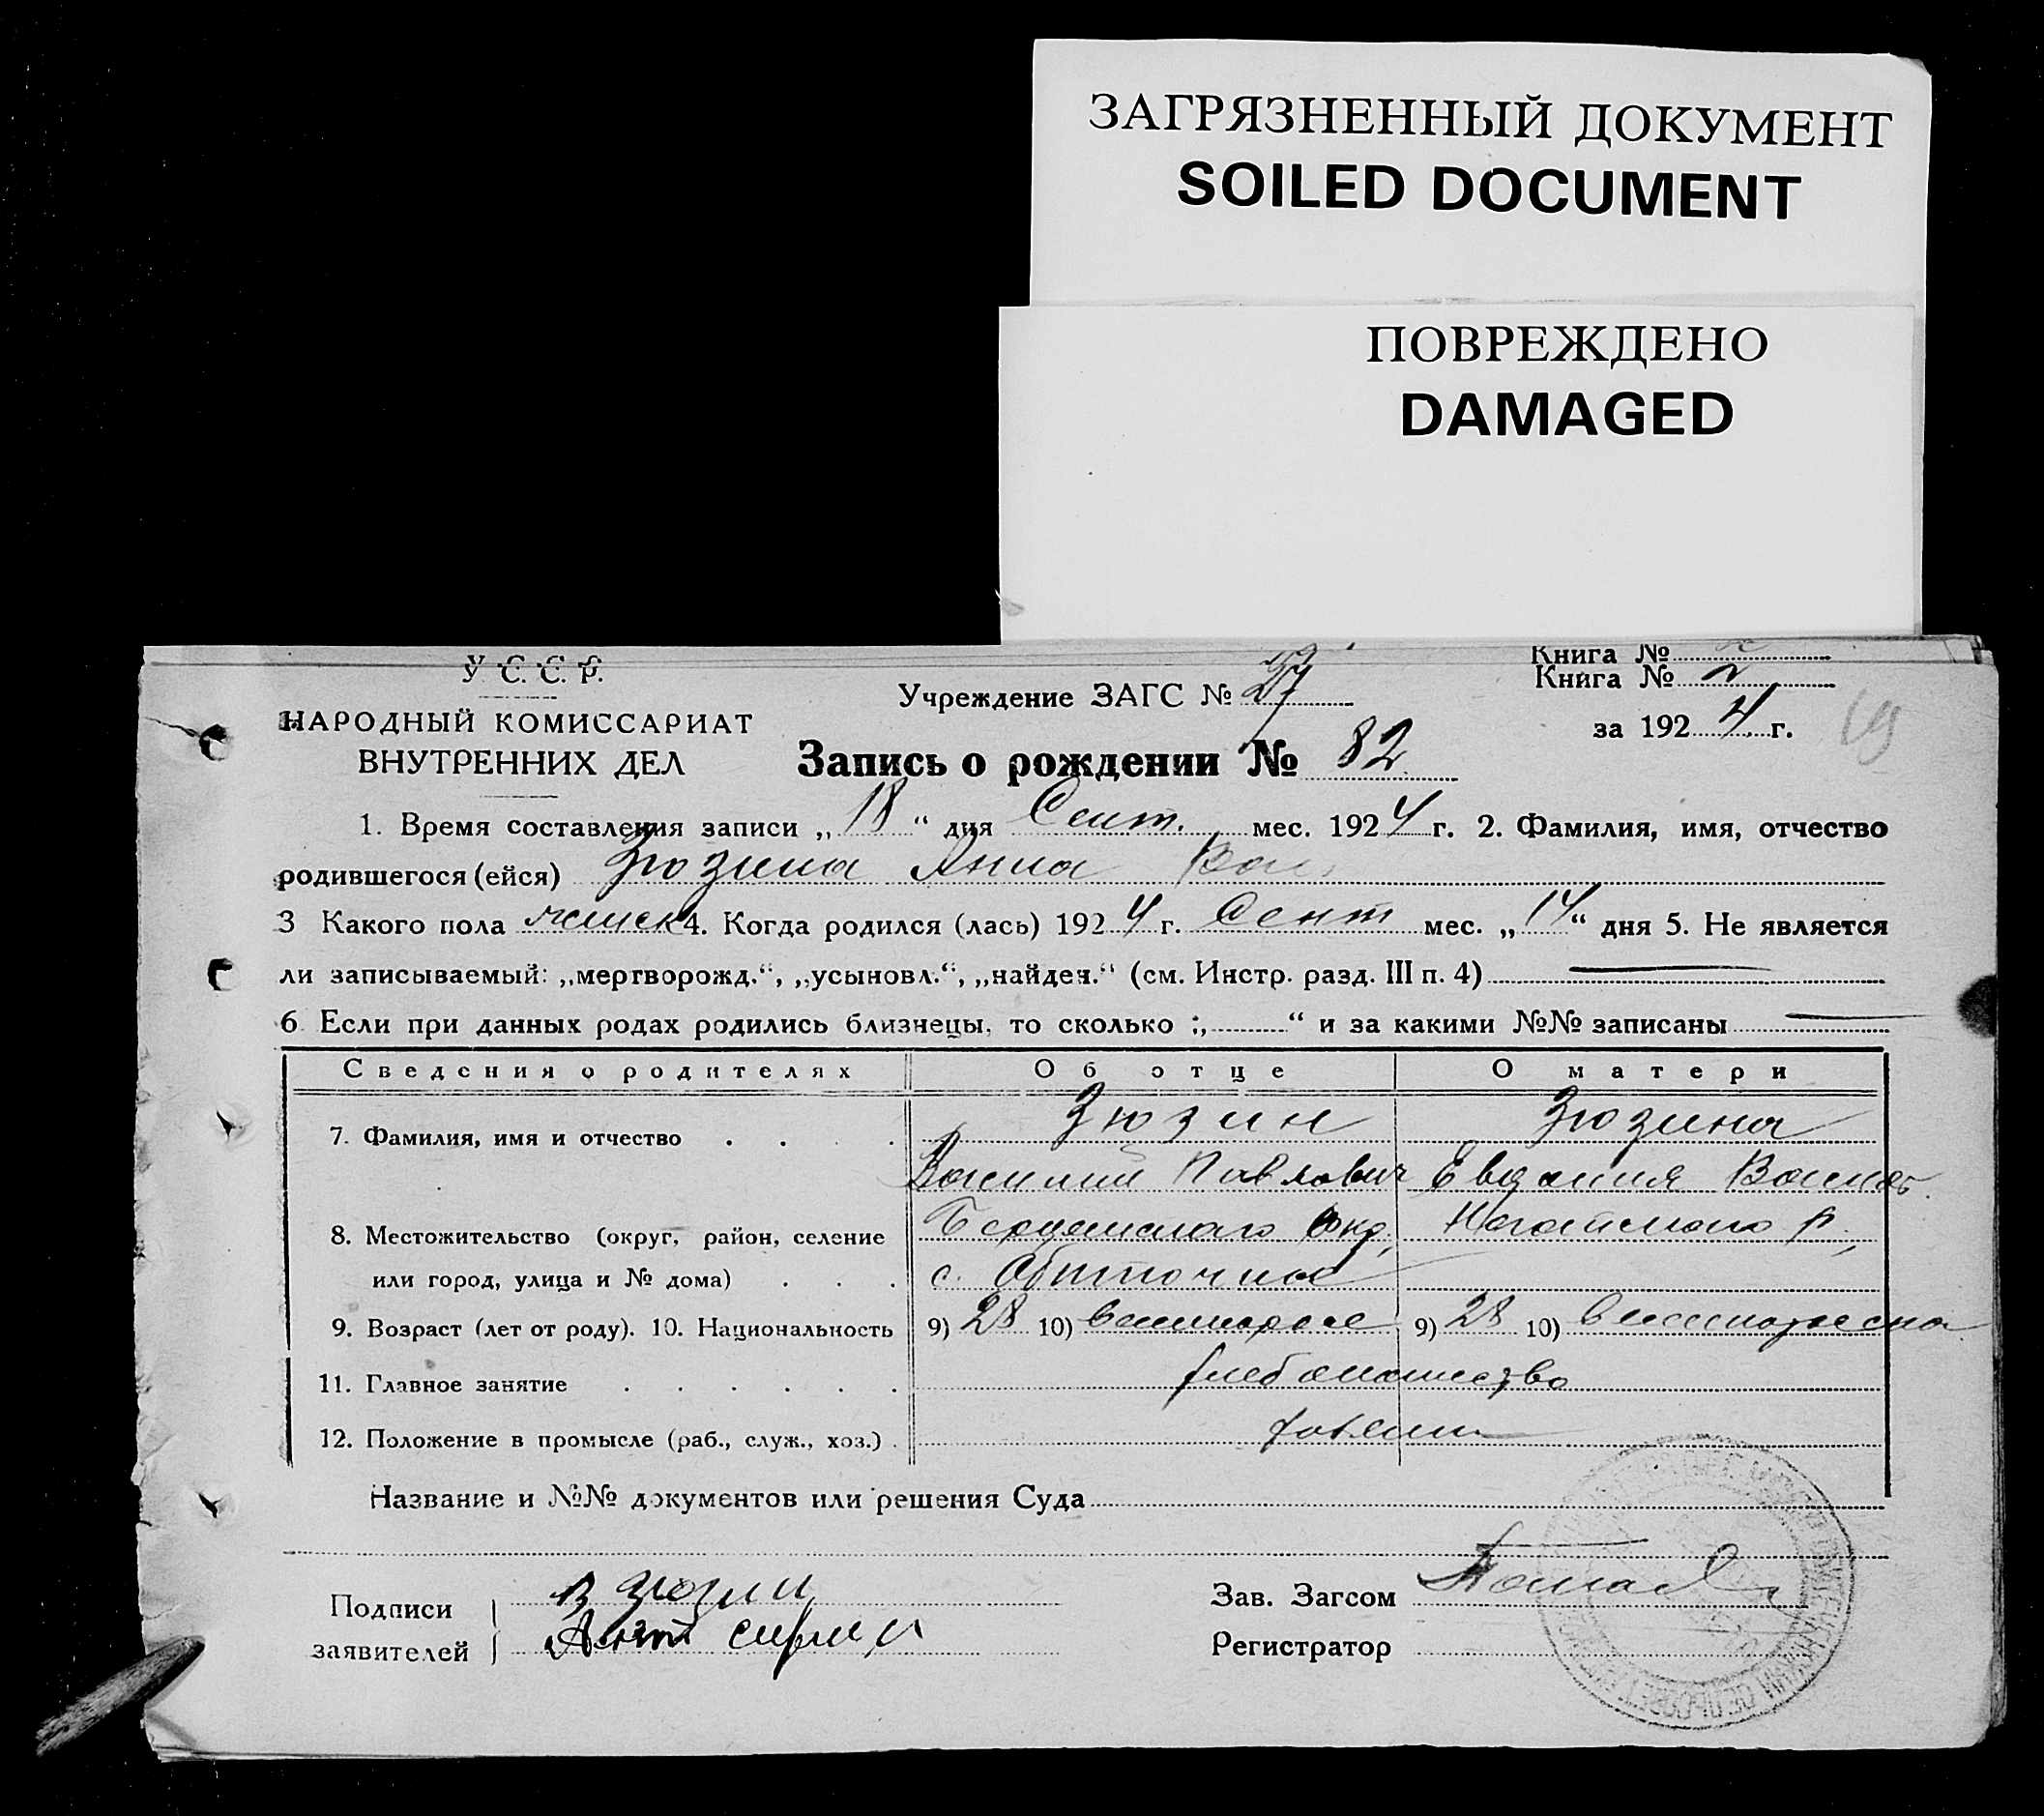 ЗАГРЯЗНЕННЫЙ ДОКУМЕНТ
SOILED DOCUMENT
ПОВРЕЖДЕНО
DAMAGED
Книга №
У С. С. Р.
Учреждение ЗАГС № 27
Книга № 2
НАРОДНЫЙ КОМИССАРИАТ
за 1924 г.
ВНУТРЕННИХ ДЕЛ
Запись о рождении № 82
1. Время составления записи „18“ дня Сент. мес. 1924 г. 2. Фамилия, имя, отчество
родившегося (ейся) Зюзина Анна Вас.
3 Какого пола женск 4. Когда родился (лась) 1924 г. Сент мес. „14“ дня 5. Не является
ли записываемый: „мертворожд.“, „усыновл.“, „найден.“ (см. Инстр. разд. III п. 4)
6 Если при данных родах родились близнецы, то сколько „ “ и за какими №№ записаны
Сведения о родителях Об отце О матери
Зюзин Зюзина
7. Фамилия, имя и отчество
Василий Павлович Евдокия
8. Местожительство (округ, район, селение Бердянского Окр. Ногайского р.
или город, улица и № дома) с. Обиточное
9. Возраст (лет от роду). 10. Национальность 9) 28 10) 9) 28 10)
11. Главное занятие хлебопашество
12. Положение в промысле (раб., служ., хоз.) хозяин
Название и №№ документов или решения Суда
Подписи В Зюзин
заявителей
Зав. Загсом
Регистратор